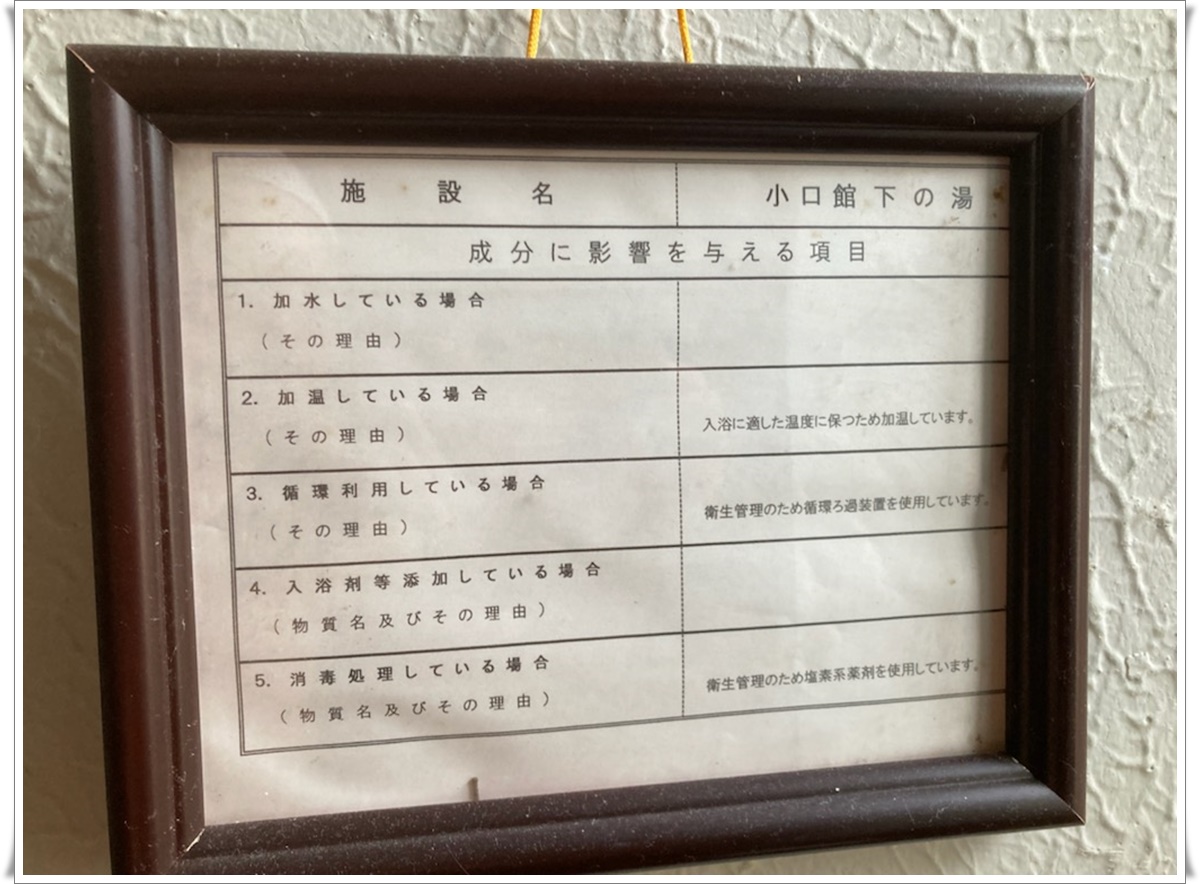 施設名 小口館下の湯
成分に影響を与える項目
1. 加水している場合
(その理由)
2. 加温している場合
(その理由)
入浴に適した温度に保つため加温しています。
3. 循環利用している場合
(その理由)
衛生管理のため循環ろ過装置を使用しています。
4. 入浴剤等添加している場合
(物質名及びその理由)
5. 消毒処理している場合
(物質名及びその理由)
衛生管理のため塩素系薬剤を使用しています。